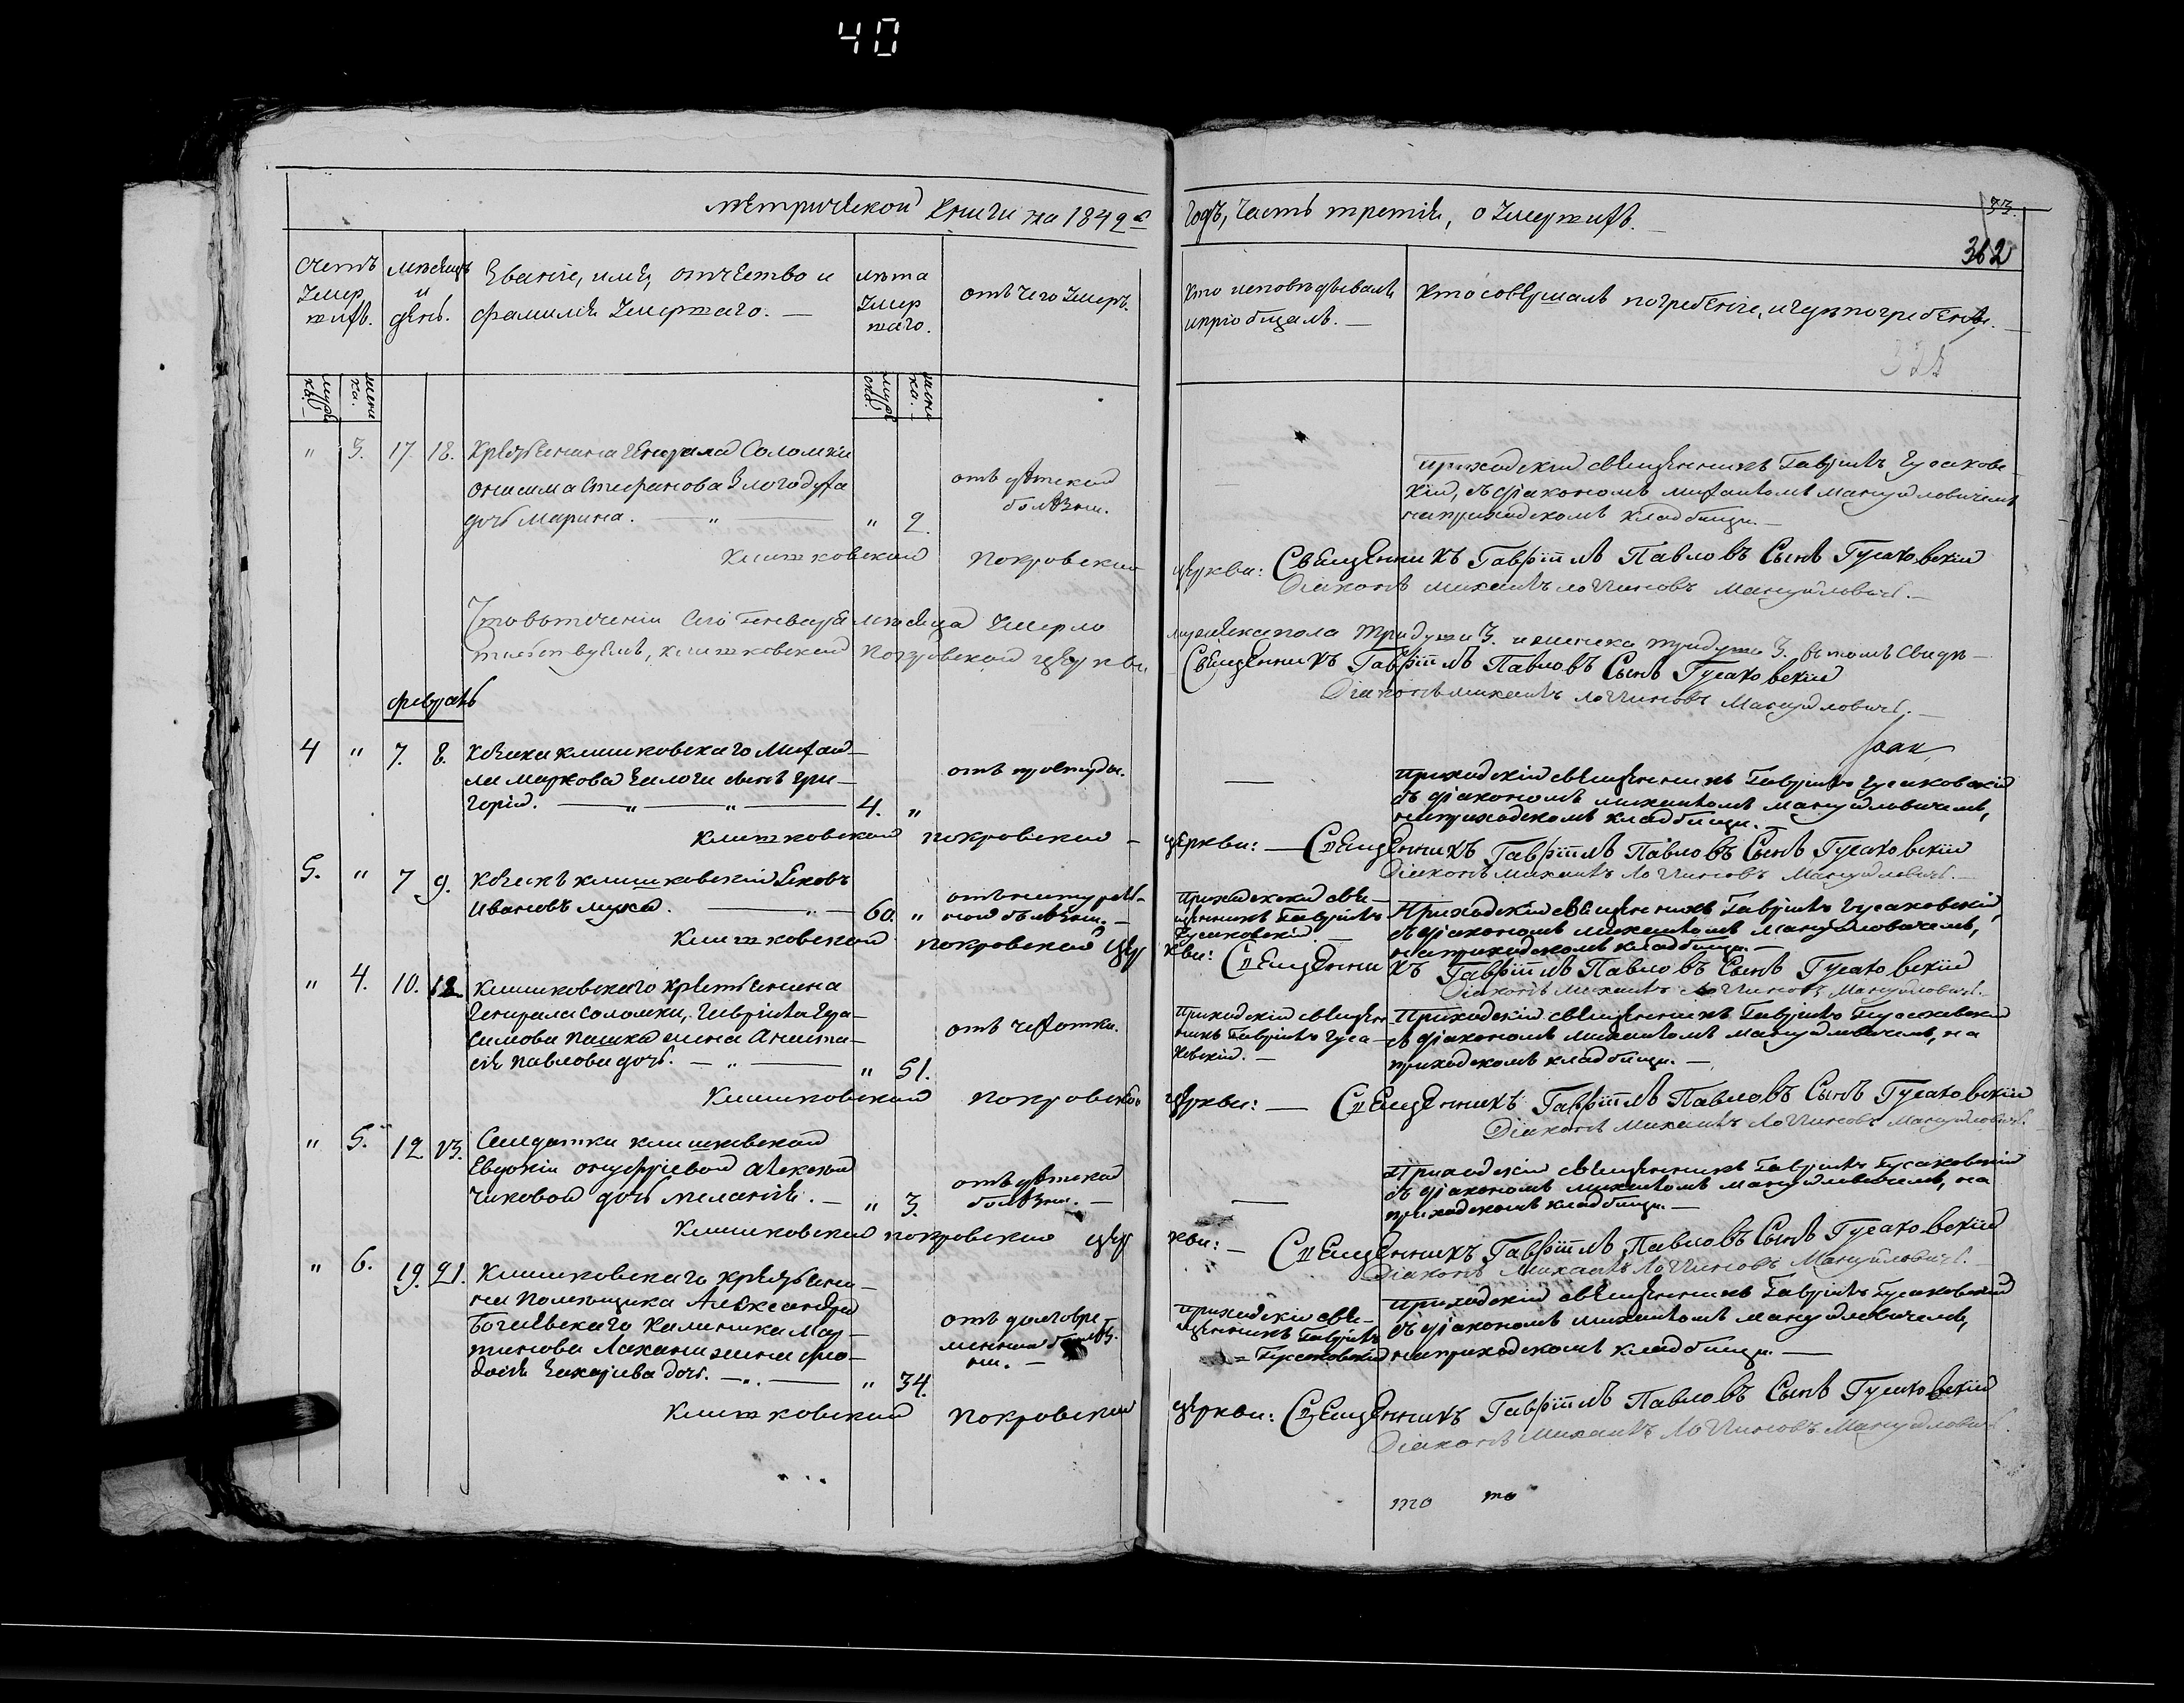 40
метрической книги на 1842й
годъ, часть третія, о умершихъ.
33.
362
счетъ умер шихъ.
мѣсяцъ и день.
Званіе, имя, отчество и
фамилія умершаго. —
лѣта умер шаго.
отъ чего умеръ.
Кто исповѣдывалъ
и пріобщалъ. —
Кто совершалъ погребеніе, и гдѣ погребены. —
325
" 3. 17. 18. Крестьянина Генерала Соломки
Онисима Стефанова
дочь Марина. — " — " 2.
отъ дѣтской
болѣзни.
—
приходскій священникъ Гавріилъ Гусаковс-
кій, съ діакономъ Михаиломъ Мануйловичемъ
на приходскомъ кладбищи. —
Клишковской Покровской
церкви: Священникъ Гавріилъ Павловъ Сынъ Гусаковскій
Діаконъ Михаилъ Логгиновъ Мануйловичъ. —
Что въ теченіи сего Генваря мѣсяца умерло
мужеска пола три души 3. и женска три души 3. въ томъ свидѣ-
тельствуемъ, Клишковской Покровской церкви
Священникъ Гавріилъ Павловъ Сынъ Гусаковскій
Діаконъ Михаилъ Логгиновъ Мануйловичъ. —
февраль
4 " 7. 8. Козака клишковскаго Михаи-
ла Маркова сынъ Гри-
горій. — " — " — 4. "
отъ простуды.
—
приходскій священникъ Гавріилъ Гусаковскій
съ діакономъ Михаиломъ Мануйловичемъ,
на приходскомъ кладбищи. —
Клишковской Покровской —
церкви: — Священникъ Гавріилъ Павловъ Сынъ Гусаковскій
Діаконъ Михаилъ Логгиновъ Мануйловичъ. —
5. " 7 9. Козакъ клишковскій Яковъ
Ивановъ — " — 60. "
отъ натураль-
ной болѣзни. —
Приходской свя-
щенникъ Гавріилъ
Гусаковскій —
Приходскій священникъ Гавріилъ Гусаковскій,
съ діакономъ Михаиломъ Мануйловичемъ,
на приходскомъ кладбищи. —
Клишковской Покровской цер
кви: Священникъ Гавріилъ Павловъ Сынъ Гусаковскій
Діаконъ Михаилъ Логгиновъ Мануйловичъ. —
" 4. 10. 12. Клишковскаго крестьянина
Генерала Соломки, Гавріила Гера-
симова жена Анаста-
сія Павлова дочь. — " — " 51.
отъ чехотки.
Приходскій священ-
никъ Гавріилъ Гуса-
ковскій. —
Приходскій священникъ Гавріилъ Гусаковскій
съ діакономъ Михаиломъ Мануйловичемъ, на
приходскомъ кладбищи. —
Клишковской Покровской
церкви: — Священникъ Гавріилъ Павловъ Сынъ Гусаковскій
Діаконъ Михаилъ Логгиновъ Мануйловичъ.
" 5. 12 13. Салдатки клишковской
Евдокіи Онуфріевой
дочь Меланія. — " 3.
отъ дѣтской
болѣзни. —
—
Приходскій священникъ Гавріилъ Гусаковскій
съ діакономъ Михаиломъ Мануйловичемъ, на
приходскомъ кладбищи. —
Клишковской Покровской цер
кви: — Священникъ Гавріилъ Павловъ Сынъ Гусаковскій
Діаконъ Михаилъ Логгиновъ Мануйловичъ.
" 6. 19. 21. Клишковскаго крестьяни-
на помѣщика Александра
Калиника Мар-
тинова жена Фео-
досія Захарьева дочь. — " — " 34.
отъ долговре-
менной болѣз-
ни. —
приходскій свя-
щенникъ Гавріилъ
Гусаковскій
приходскій священникъ Гавріилъ Гусаковскій
съ діакономъ Михаиломъ Мануйловичемъ,
на приходскомъ кладбищи. —
Клишковской Покровской
церкви: Священникъ Гавріилъ Павловъ Сынъ Гусаковскій
Діаконъ Михаилъ Логгиновъ Мануйловичъ.
то то